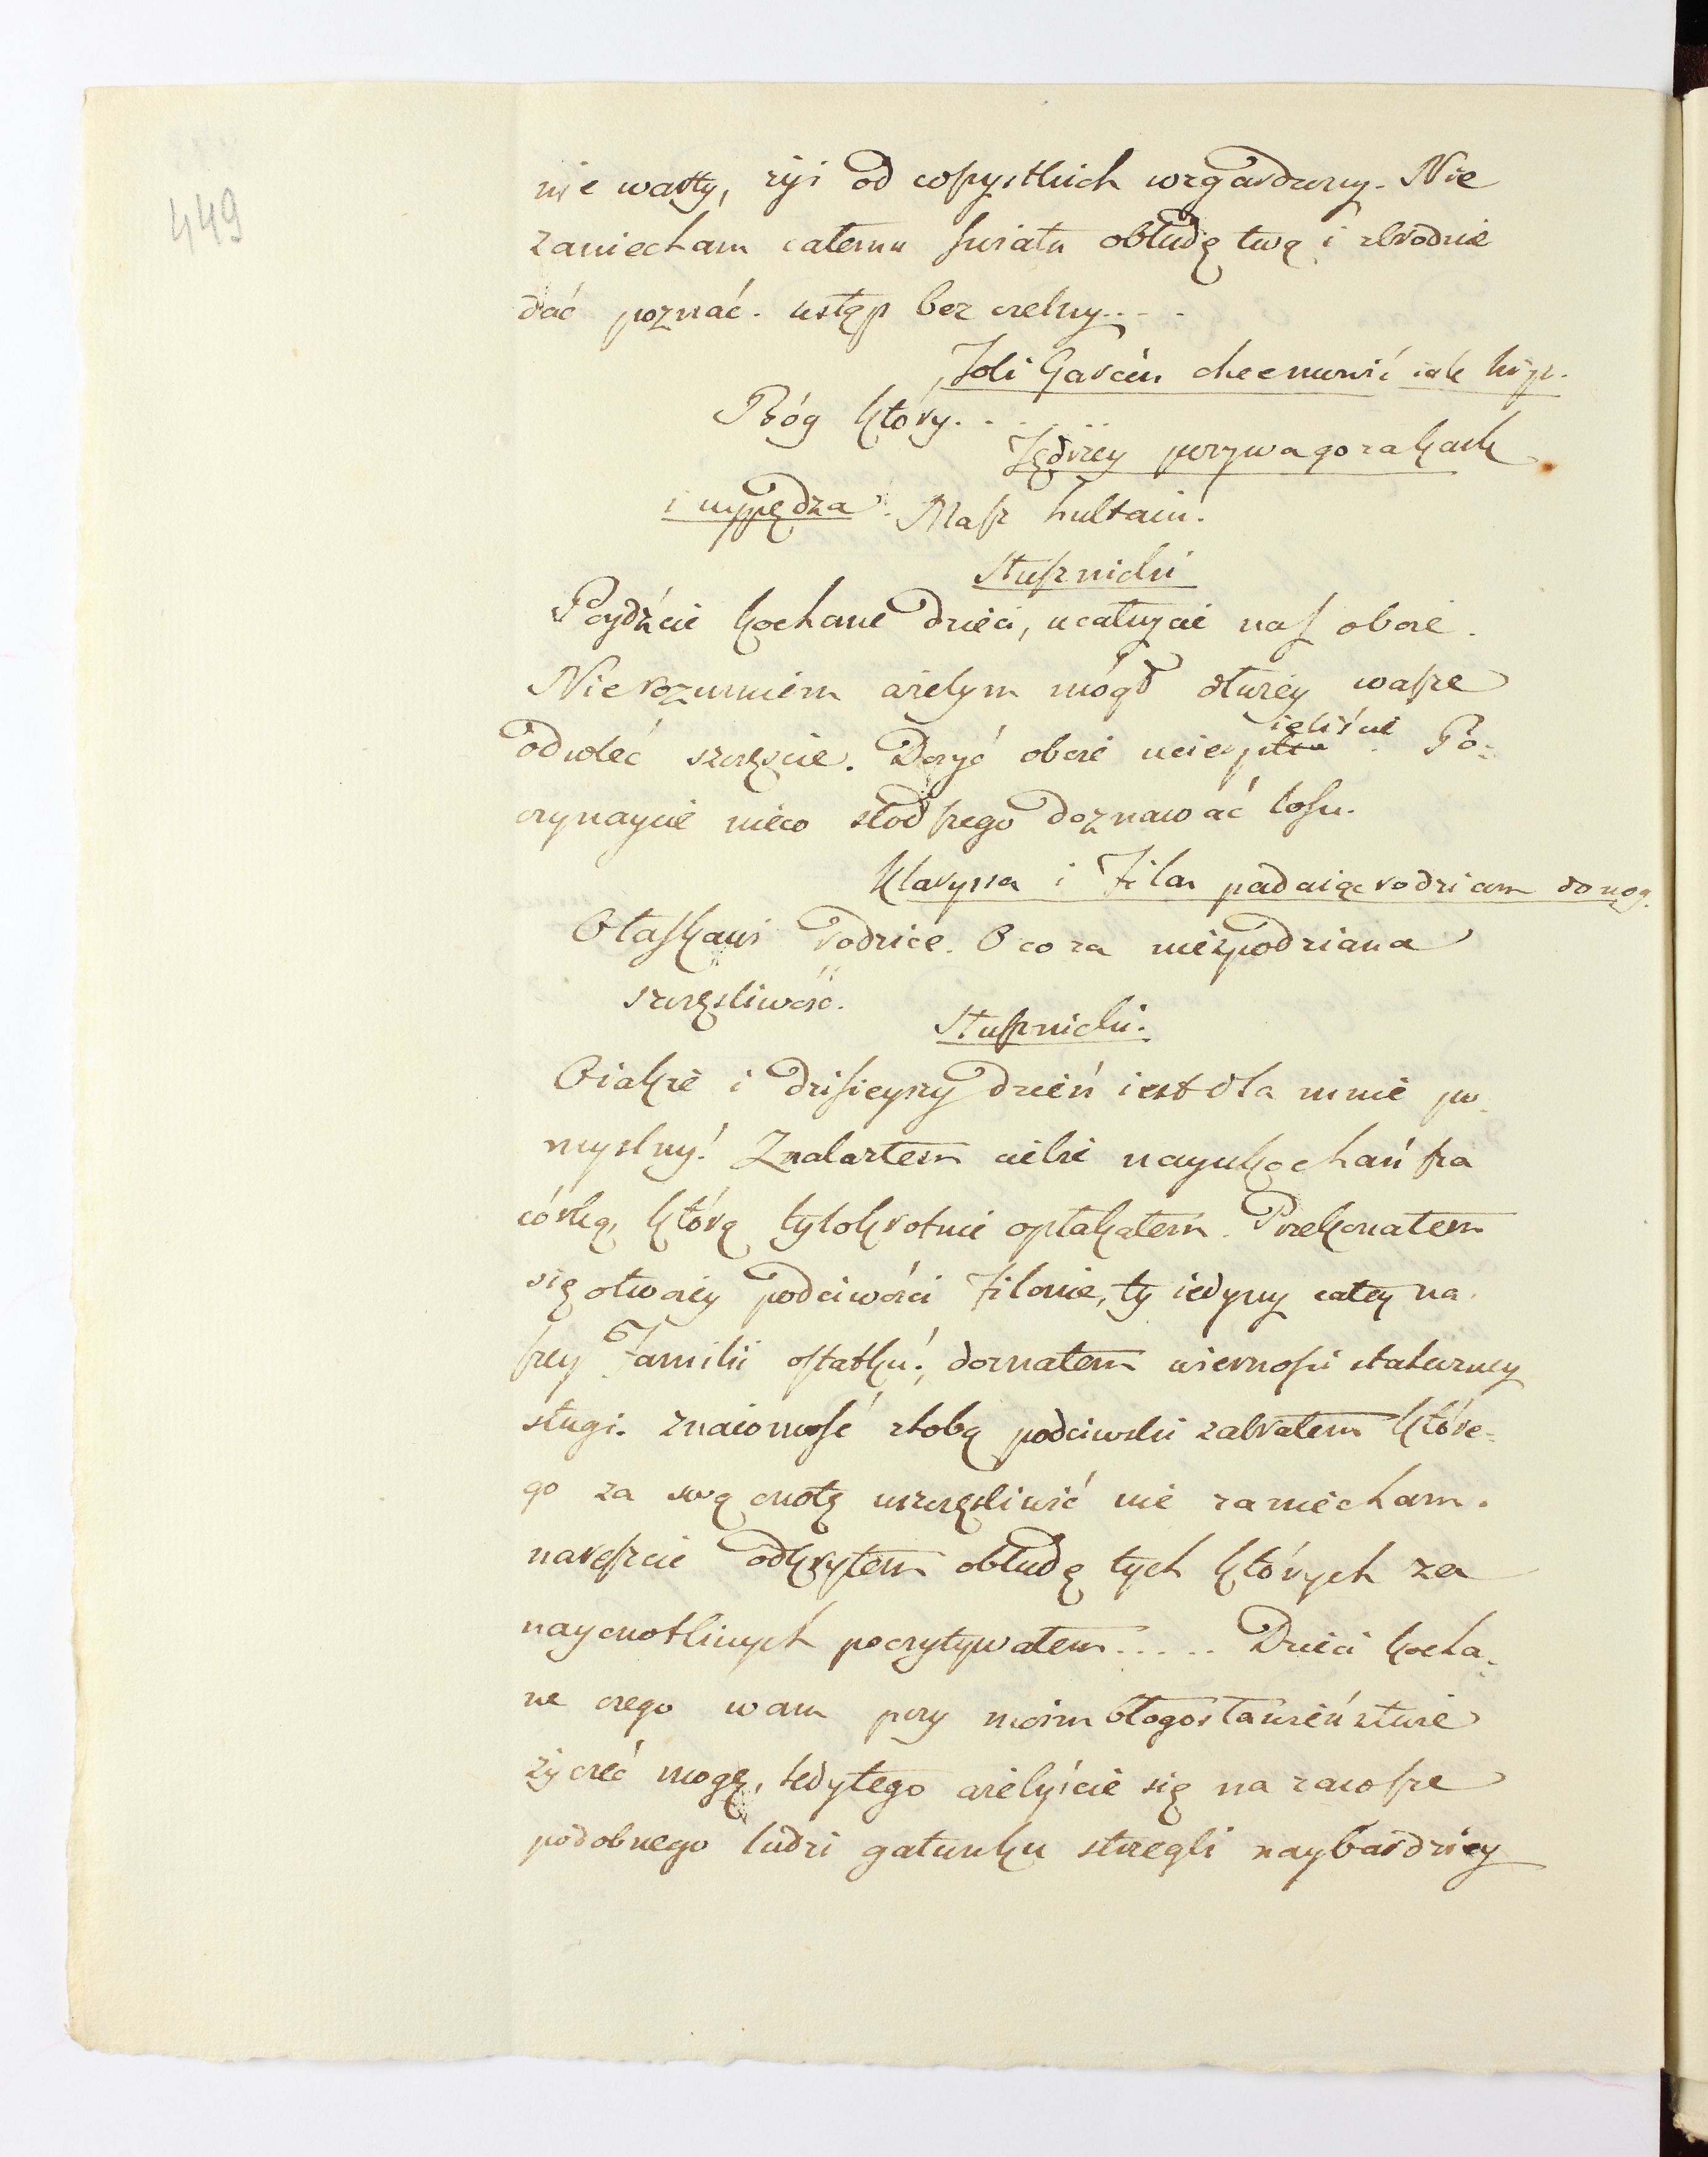 449
nie warty, zyi od wszystkich wzgardzony. Nie
zaniecham całemu światu obłudę twą i zbrodnie
dać poznać. ustąp bez czelny....
Joli Garcin chce mówić iak hip.
Bóg który. . . . .
Jędrzey porywa go za kark
i wypędza. Masz hultaiu!
Stusznicki
Poydźcie kochane dzieci, ucałuycie nas oboie.
Nie rozumiem ażebym mógł dłużey wasze
odwlec szczęscie. Dosyć oboie ucierpieliście. Po-
czynaycie nieco słodszego doznawać losu.
Klaryssa i Filon padaią rodzicom do nog.
O łaskawi rodzice. O co za niezpodziana
szczęsliwość.
Stusznicki.
O iakże i dzisieyszy dzień iest dla mnie po-
myslny! Znalazłem ciebie nayukochańsza
córkę, którą tylokrotnie opłakałem. Przekonałem
się o twoiey podciwości Filonie, ty iedyny całey na-
szey Familii ostatku!, doznałem wiernosci stateczney
sługi. Znaiomość z tobą podciwski zabrałem które-
go za swą cnotę uszczęsliwić nie zaniecham.
nareszcie odkryłem obłudę tych których za
naycnotliwych poczytywałem..... Dzieci kocha-
ne czego wam przy moim błogosławieństwie
życzeć mogę, tedy tego ażebyście się na zawsze
podobnego ludzi gatunku strzegli naybardziey